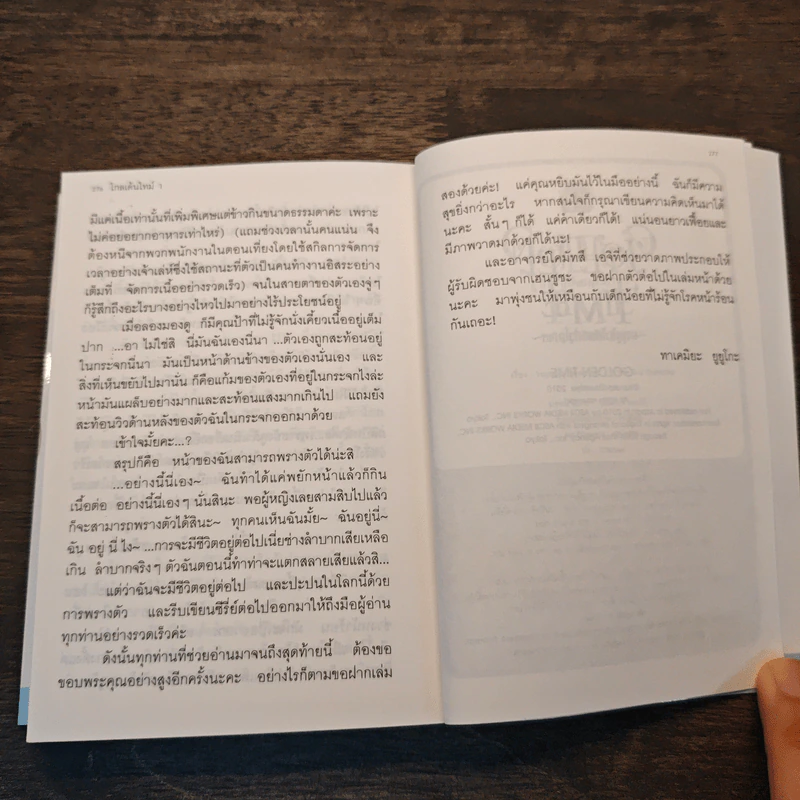 โกลเด้นไทม์ 1
มีแค่เนื้อเท่านั้นที่เพิ่มพิเศษแต่ข้าวกินขนาดธรรมดาค่ะ เพราะ
ไม่ค่อยอยากอาหารเท่าไหร่) (แถมช่วงเวลานั้นคนแน่น จึง
ต้องหนีจากพวกพนักงานในตอนเที่ยงโดยใช้สกิลการจัดการ
เวลาอย่างเจ้าเล่ห์ซึ่งใช้สถานะที่ตัวเป็นคนทำงานอิสระอย่าง
เต็มที่ จัดการเนื้ออย่างรวดเร็ว) จนในสายตาของตัวเองจู่ๆ
ก็รู้สึกถึงอะไรบางอย่างไหวไปมาอย่างไร้ประโยชน์อยู่
เมื่อลองมองดู ก็มีคุณป้าที่ไม่รู้จักนั่งเคี้ยวเนื้ออยู่เต็ม
ปาก ...อา ไม่ใช่สิ นี่มันฉันเองนี่นา ...ตัวเองถูกสะท้อนอยู่
ในกระจกนี่นา มันเป็นหน้าด้านข้างของตัวเองนั่นเอง และ
สิ่งที่เห็นขยับไปมานั่น ก็คือแก้มของตัวเองที่อยู่ในกระจกไงล่ะ
หน้ามันแผล็บอย่างมากและสะท้อนแสงมากเกินไป แถมยัง
สะท้อนวิวด้านหลังของตัวฉันในกระจกออกมาด้วย
เข้าใจมั้ยคะ...?
สรุปก็คือ หน้าของฉันสามารถพรางตัวได้น่ะสิ
...อย่างนี้นี่เอง~ ฉันทำได้แค่พยักหน้าแล้วก็กิน
เนื้อต่อ อย่างนี้นี่เองๆ นั่นสินะ พอผู้หญิงเลยสามสิบไปแล้ว
ก็จะสามารถพรางตัวได้สินะ~ ทุกคนเห็นฉันมั้ย~ ฉันอยู่นี่~
ฉัน อยู่ นี่ ไง~ ...การจะมีชีวิตอยู่ต่อไปเนี่ยช่างลำบากเสียเหลือ
เกิน ลำบากจริงๆ ตัวฉันตอนนี้ทำท่าจะแตกสลายเสียแล้วสิ...
แต่ว่าฉันจะมีชีวิตอยู่ต่อไป และปะปนในโลกนี้ด้วย
การพรางตัว และรีบเขียนซีรี่ย์ต่อไปออกมาให้ถึงมือผู้อ่าน
ทุกท่านอย่างรวดเร็วค่ะ
ดังนั้นทุกท่านที่ช่วยอ่านมาจนถึงสุดท้ายนี้ ต้องขอ
ขอบพระคุณอย่างสูงอีกครั้งนะคะ อย่างไรก็ตามขอฝากเล่ม
สองด้วยค่ะ! แค่คุณหยิบมันไว้ในมืออย่างนี้ ฉันก็มีความ
สุขยิ่งกว่าอะไร หากสนใจก็กรุณาเขียนความคิดเห็นมาได้
นะคะ สั้นๆ ก็ได้ แค่คำเดียวก็ได้! แน่นอนยาวเฟื้อยและ
มีภาพวาดมาด้วยก็ได้นะ!
และอาจารย์โคมัทสึ เอจิที่ช่วยวาดภาพประกอบให้
ผู้รับผิดชอบจากเฮนชูชะ ขอฝากตัวต่อไปในเล่มหน้าด้วย
นะคะ มาพุ่งชนให้เหมือนกับเด็กน้อยที่ไม่รู้จักโรคหน้าร้อน
กันเถอะ!
ทาเคมิยะ ยูยูโกะ